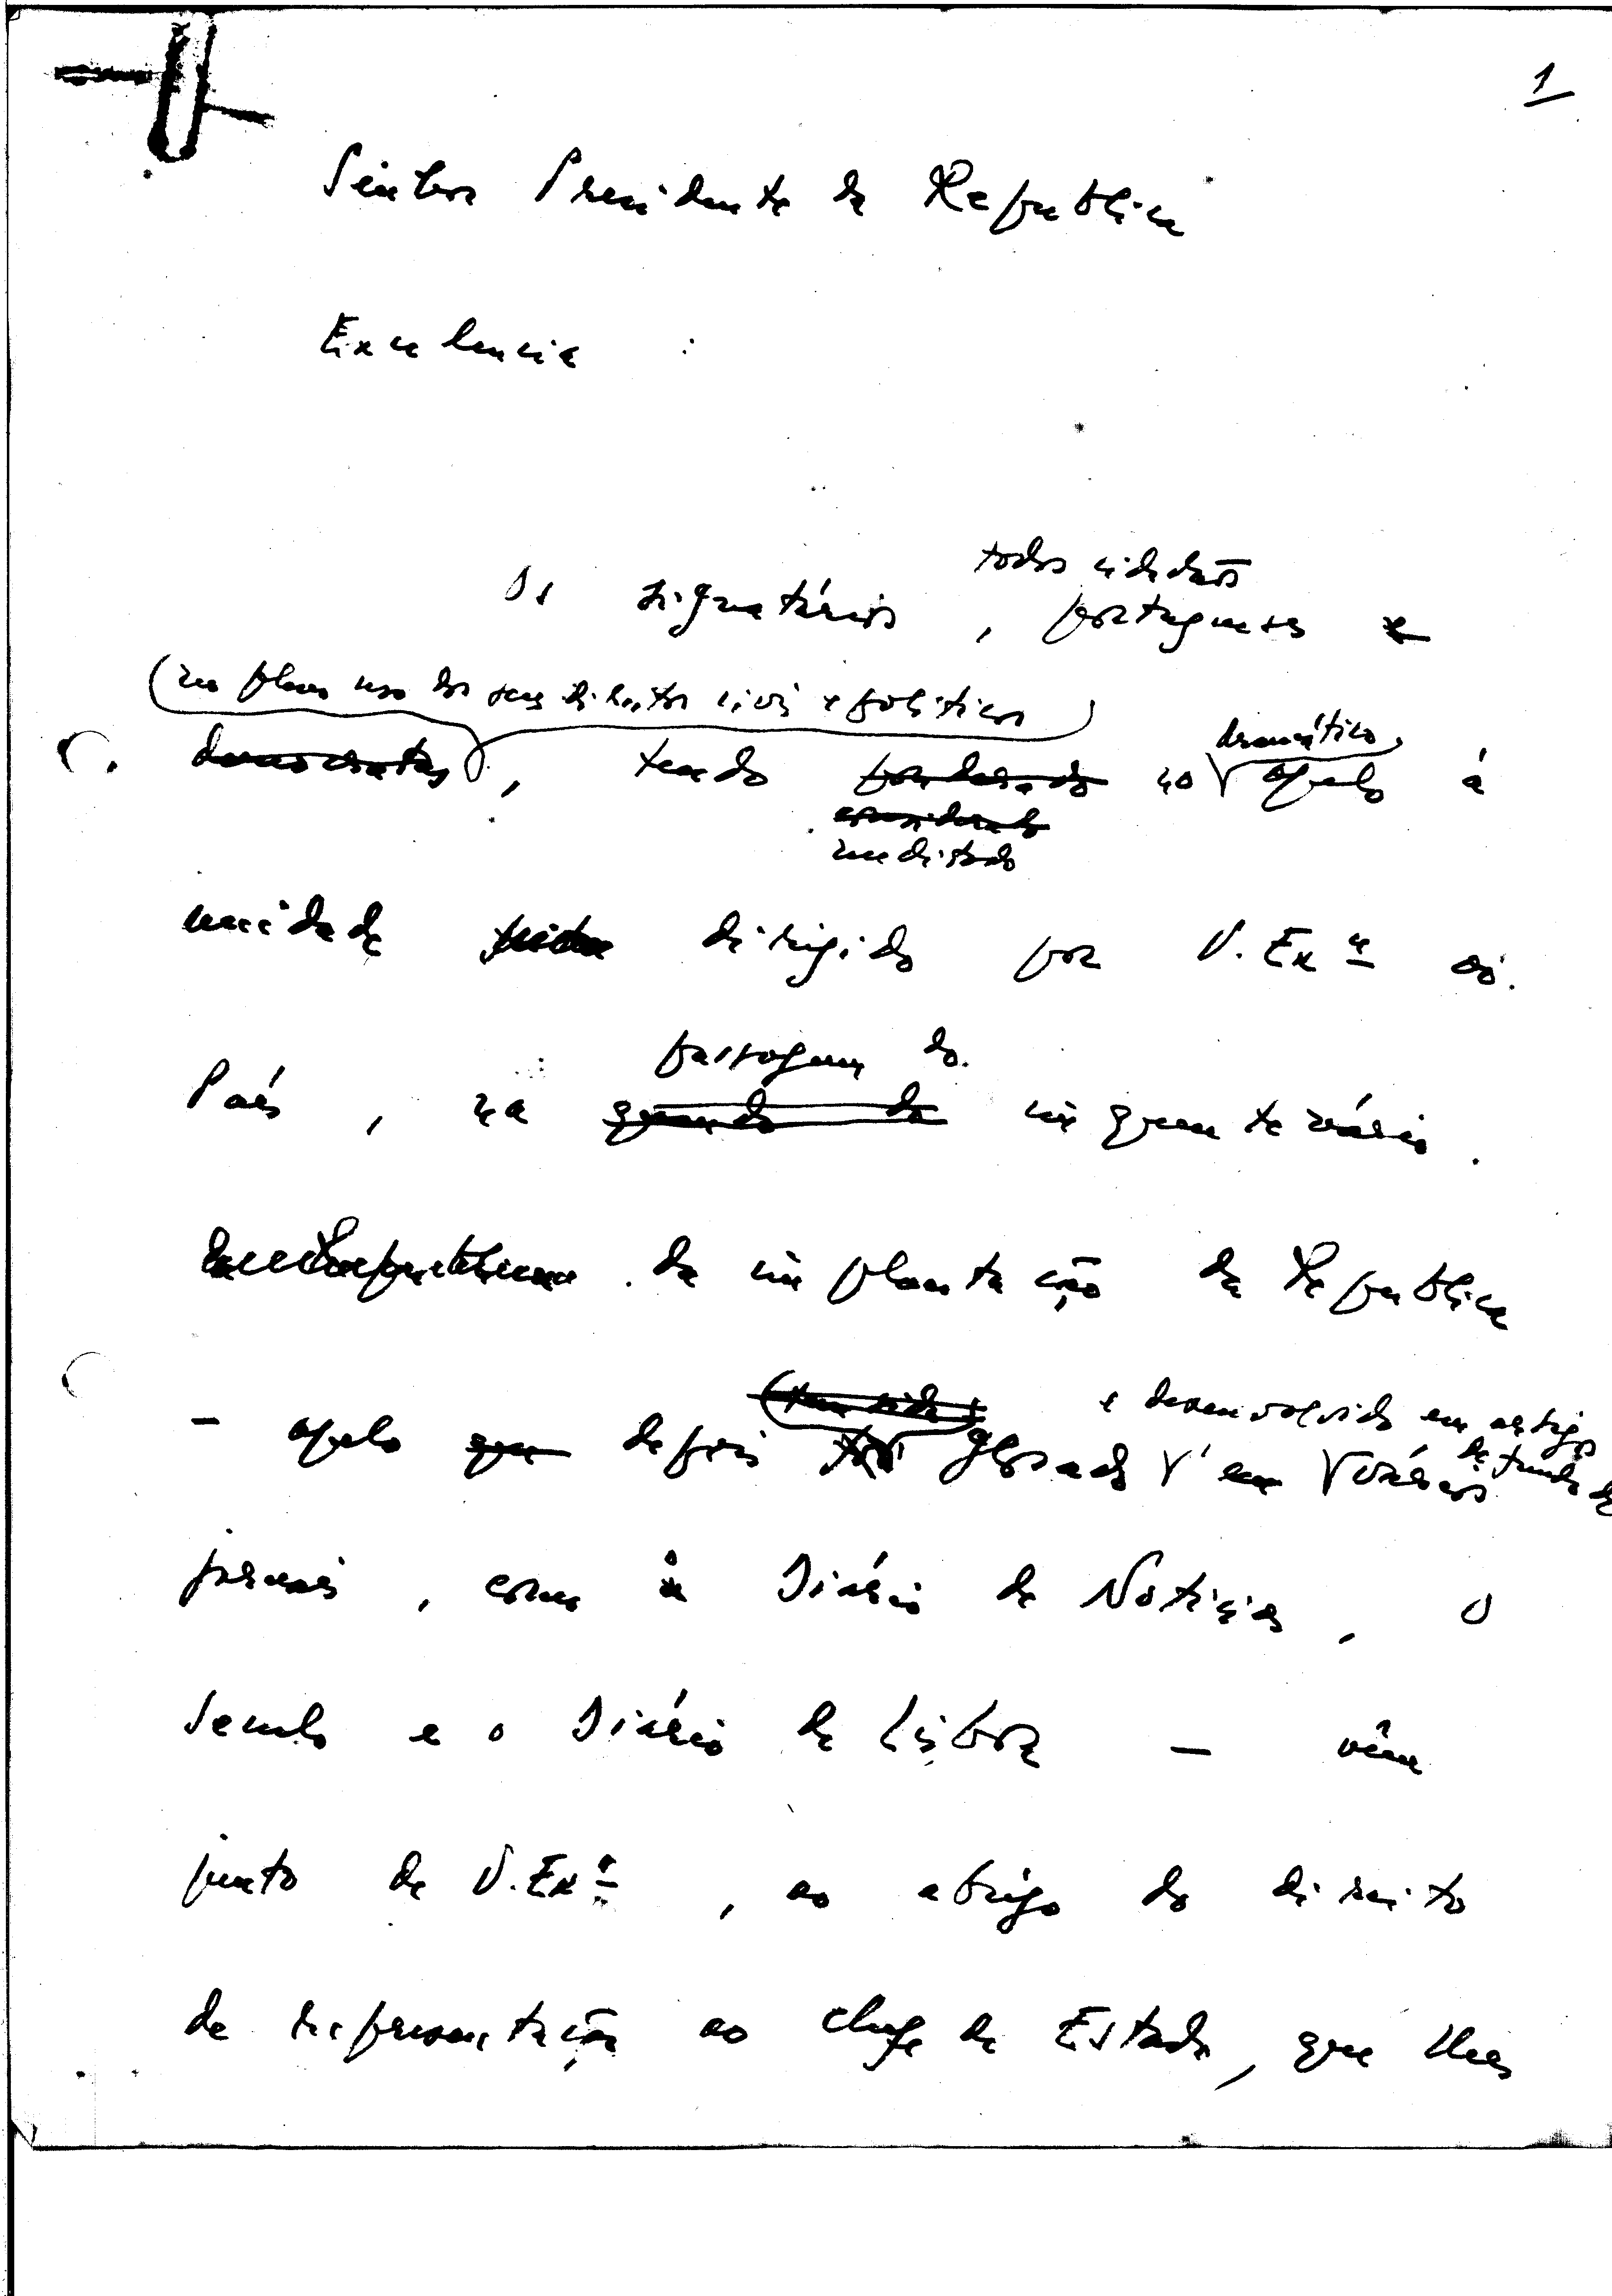 1
Senhor Presidente da Republica
Excelencia :
todos cidadãos
Os signatários, portugueses e
(no pleno uso dos seus direitos civis e politicos)
dramático
democratas, tendo ponderado no apelo á
considerado
meditado
unidade dirigido por V. Exª ao
passagem do
País, na quando do cinquentenário
da implantação da Republica
(tem sido) e desenvolvido em artigos
de fundo de
- apelo que depois foi glosado em vários
jornais, como o Diário de Noticias, O
Seculo e o Diário de Lisboa - vêm
junto de V. Exª, ao abrigo do direito
de representação ao chefe de Estado, que lhes